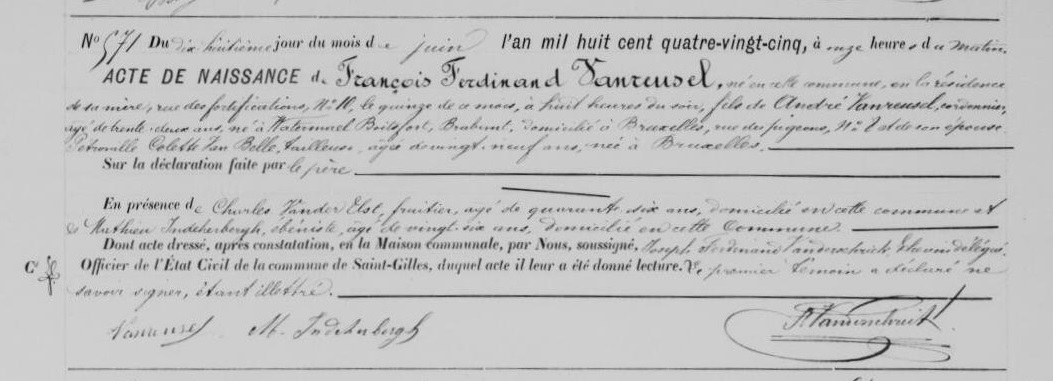 No 571 Du dix huitième jour du mois de juin l'an mil huit cent quatre-vingt-cinq, à onze heures du matin,
ACTE DE NAISSANCE de François Ferdinand Vanreusel, né en cette commune, en la résidence
de sa mère, rue des fortifications, No 10, le quinze de ce mois, à huit heures du soir, fils de André Vanreusel, cordonnier,
âgé de trente-deux ans, né à Watermael Boitsfort, Brabant, domicilié à Bruxelles, rue des pigeons, No 8 et de son épouse
Pétronille Colette Van Belle, tailleuse, âgée de vingt-neuf ans, née à Bruxelles.
Sur la déclaration faite par le père
En présence de Charles Vander Elst, fruitier, âgé de quarante-six ans, domicilié en cette commune et
de Mathieu Indeherbergh, ébéniste, âgé de vingt-six ans, domicilié en cette commune.
Dont acte dressé, après constatation, en la Maison communale, par Nous, soussigné, Joseph Ferdinand Echevin délégué
Ce Officier de l'État Civil de la commune de Saint-Gilles, duquel acte il leur a été donné lecture. Le premier témoin a déclaré ne
savoir signer, étant illettré.
Vanreusel M. Indeherbergh